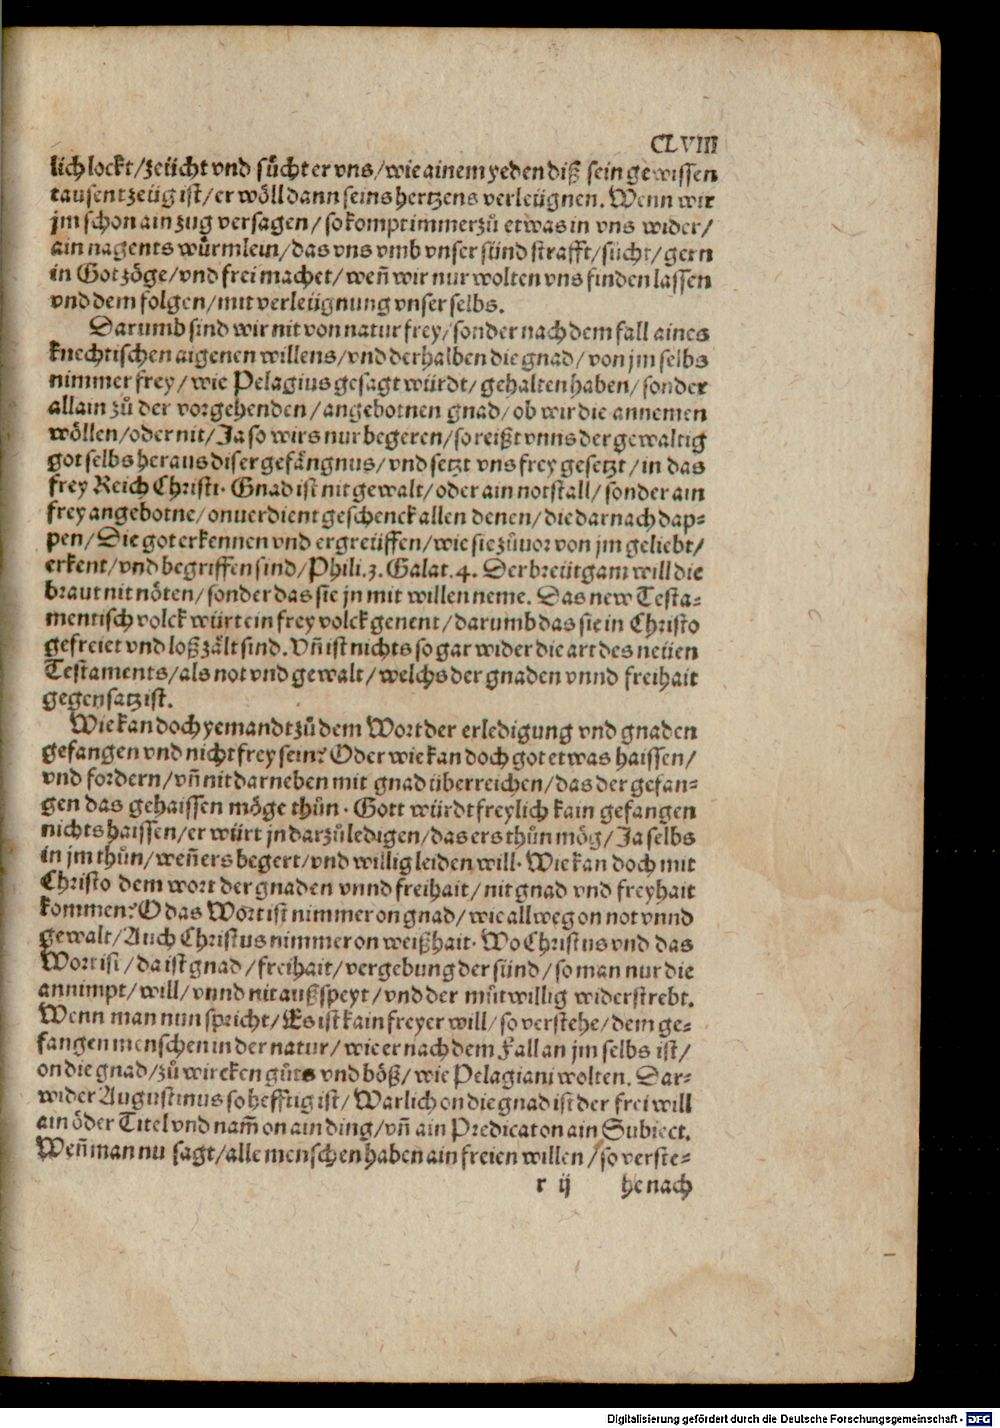 CLVIII
lich lockt/zeücht vnd sůcht er vns/wie ainem yeden diß sein gewissen
tausent zeüg ist/er wöll dann seins hertzens verleügnen. Wenn wir
jm schon ain zug versagen/so kompt immerzů etwas in vns wider/
ain nagents würmlein/das vns vmb vnser sünd strafft/sůcht/gern
in Got zöge/vnd frei machet/weñ wir nur wolten vns finden lassen
vnd dem folgen/mit verleügnung vnser selbs.
Darumb sind wir nit von natur frey/sonder nach dem fall aines
knechtischen aigenen willens/vnd derhalben die gnad/von jm selbs
nimmer frey/wie Pelagius gesagt würdt/gehalten haben/sonder
allain zů der vorgehenden/angebotnen gnad/ob wir die annemen
wöllen/oder nit/Ja so wirs nur begeren/so reißt vnns der gewaltig
got selbs heraus diser gefängnus/vnd setzt vns frey gesetzt/in das
frey Reich Christi. Gnad ist nit gewalt/oder ain notstall/sonder ain
frey angebotne/onuerdient geschenck allen denen/die darnach dap-
pen/Die got erkennen vnd ergreiffen/wie sie zůuor von jm geliebt/
erkent/vnd begriffen sind/Phili.3. Galat.4. Der breütgam will die
braut nit nöten/sonder das sie jn mit willen neme. Das new Testa-
mentisch volck würt ein frey volck genent/darumb das sie in Christo
gefreiet vnd loß zält sind. Vñ ist nichts so gar wider die art des neüen
Testaments/als not vnd gewalt/welchs der gnaden vnnd freihait
gegensatz ist.
Wie kan doch yemandt zů dem Wort der erledigung vnd gnaden
gefangen vnd nicht frey sein? Oder wie kan doch got etwas haissen/
vnd fordern/vñ nit darneben mit gnad überreichen/das der gefan-
gen das gehaissen möge thůn. Gott würdt freylich kain gefangen
nichts haissen/er würt jn darzů ledigen/das ers thůn mög/Ja selbs
in jm thůn/weñ ers begert/vnd willig leiden will. Wie kan doch mit
Christo dem wort der gnaden vnnd freihait/nit gnad vnd freyhait
kommen? O das Wort ist nimmer on gnad/wie allweg on not vnnd
gewalt/Auch Christus nimmer on weißhait. Wo Christus vnd das
Wort ist/da ist gnad/freihait/vergebung der sünd/so man nur die
annimpt/will/vnnd nit außspeyt/vnd der můtwillig widerstrebt.
Wenn man nun spricht/Es ist kain freyer will/so verstehe/dem ge-
fangen menschen in der natur/wie er nach dem Fall an jm selbs ist/
on die gnad/zů wircken gůts vnd böß/wie Pelagiani wolten. Dar-
wider Augustinus so hefftig ist/Warlich on die gnad ist der frei will
ain öder Titel vnd nam̃ on ain ding/vñ ain Predicat on ain Subiect.
Weñ man nu sagt/alle menschen haben ain freien willen/so verste-
r ij he nach
Digitalisierung gefördert durch die Deutsche Forschungsgemeinschaft - DFG